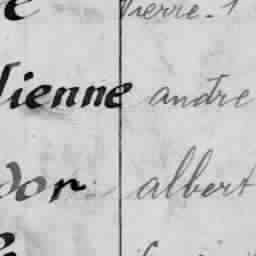 Pierre
lienne andre
dor albert